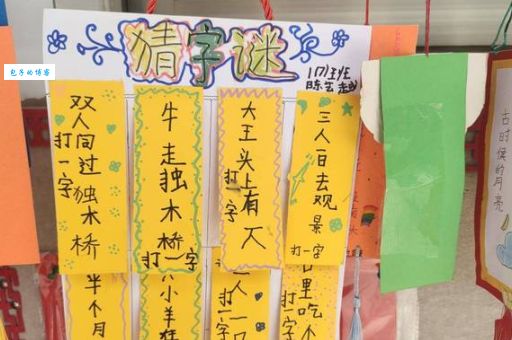 包子的博客
猜字谜
17班
双人同过独木桥
打一字
牛走独木桥
打一字
大王头上有人
打一字
三人一日去观景
打一字
半个月
小羊
打一字
人一口
打一字
里吃个
打一字
古时候的月亮